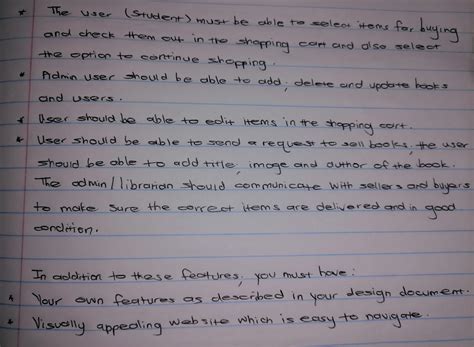 * The user (student) must be able to select items for buying
and check them out in the shopping cart and also select
the option to continue shopping.
* Admin user should be able to add, delete and update books
and users.
* User should be able to edit items in the shopping cart.
* User should be able to send a request to sell books, the user
should be able to add title, image and author of the book.
The admin/librarian should communicate with sellers and buyers
to make sure the correct items are delivered and in good
condition.
In addition to these features, you must have:
* Your own features as described in your design document.
* Visually appealing website which is easy to navigate.